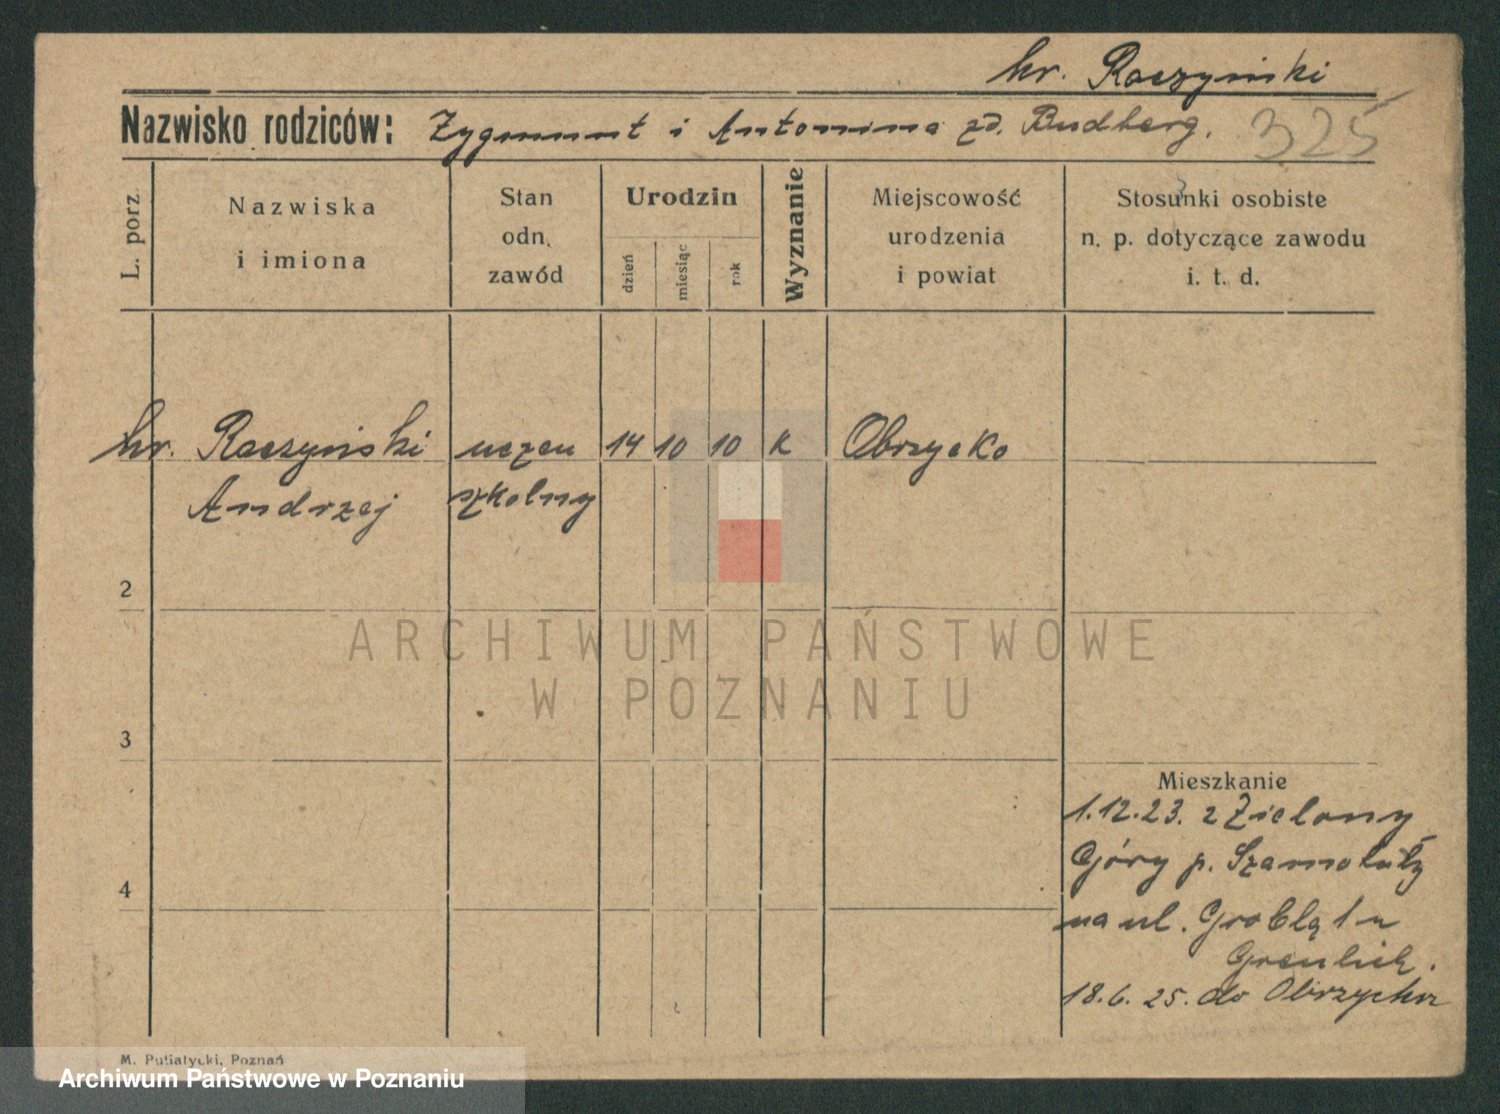 hr. Raczyński
Nazwisko rodziców: Zygmunt i Antonina zd. Budberg. 325
L. porz.
Nazwiska
i imiona
Stan
odn.
zawód
Urodzin
dzień
miesiąc
rok
Wyznanie
Miejscowość
urodzenia
i powiat
Stosunki osobiste
n. p. dotyczące zawodu
i. t. d.
hr. Raczyński uczeu 14 10 10 K Obrzycko
Andrzej szkolny
2
ARCHIWUM PAŃSTWOWE
W POZNANIU
3
Mieszkanie
1.12.23. z Zielony
Góry p. Szamotuły
4
na ul. Groblą 1 u
Greulich.
18.6.25. do Obrzycka
M. Putiatycki, Poznań
Archiwum Państwowe w Poznaniu